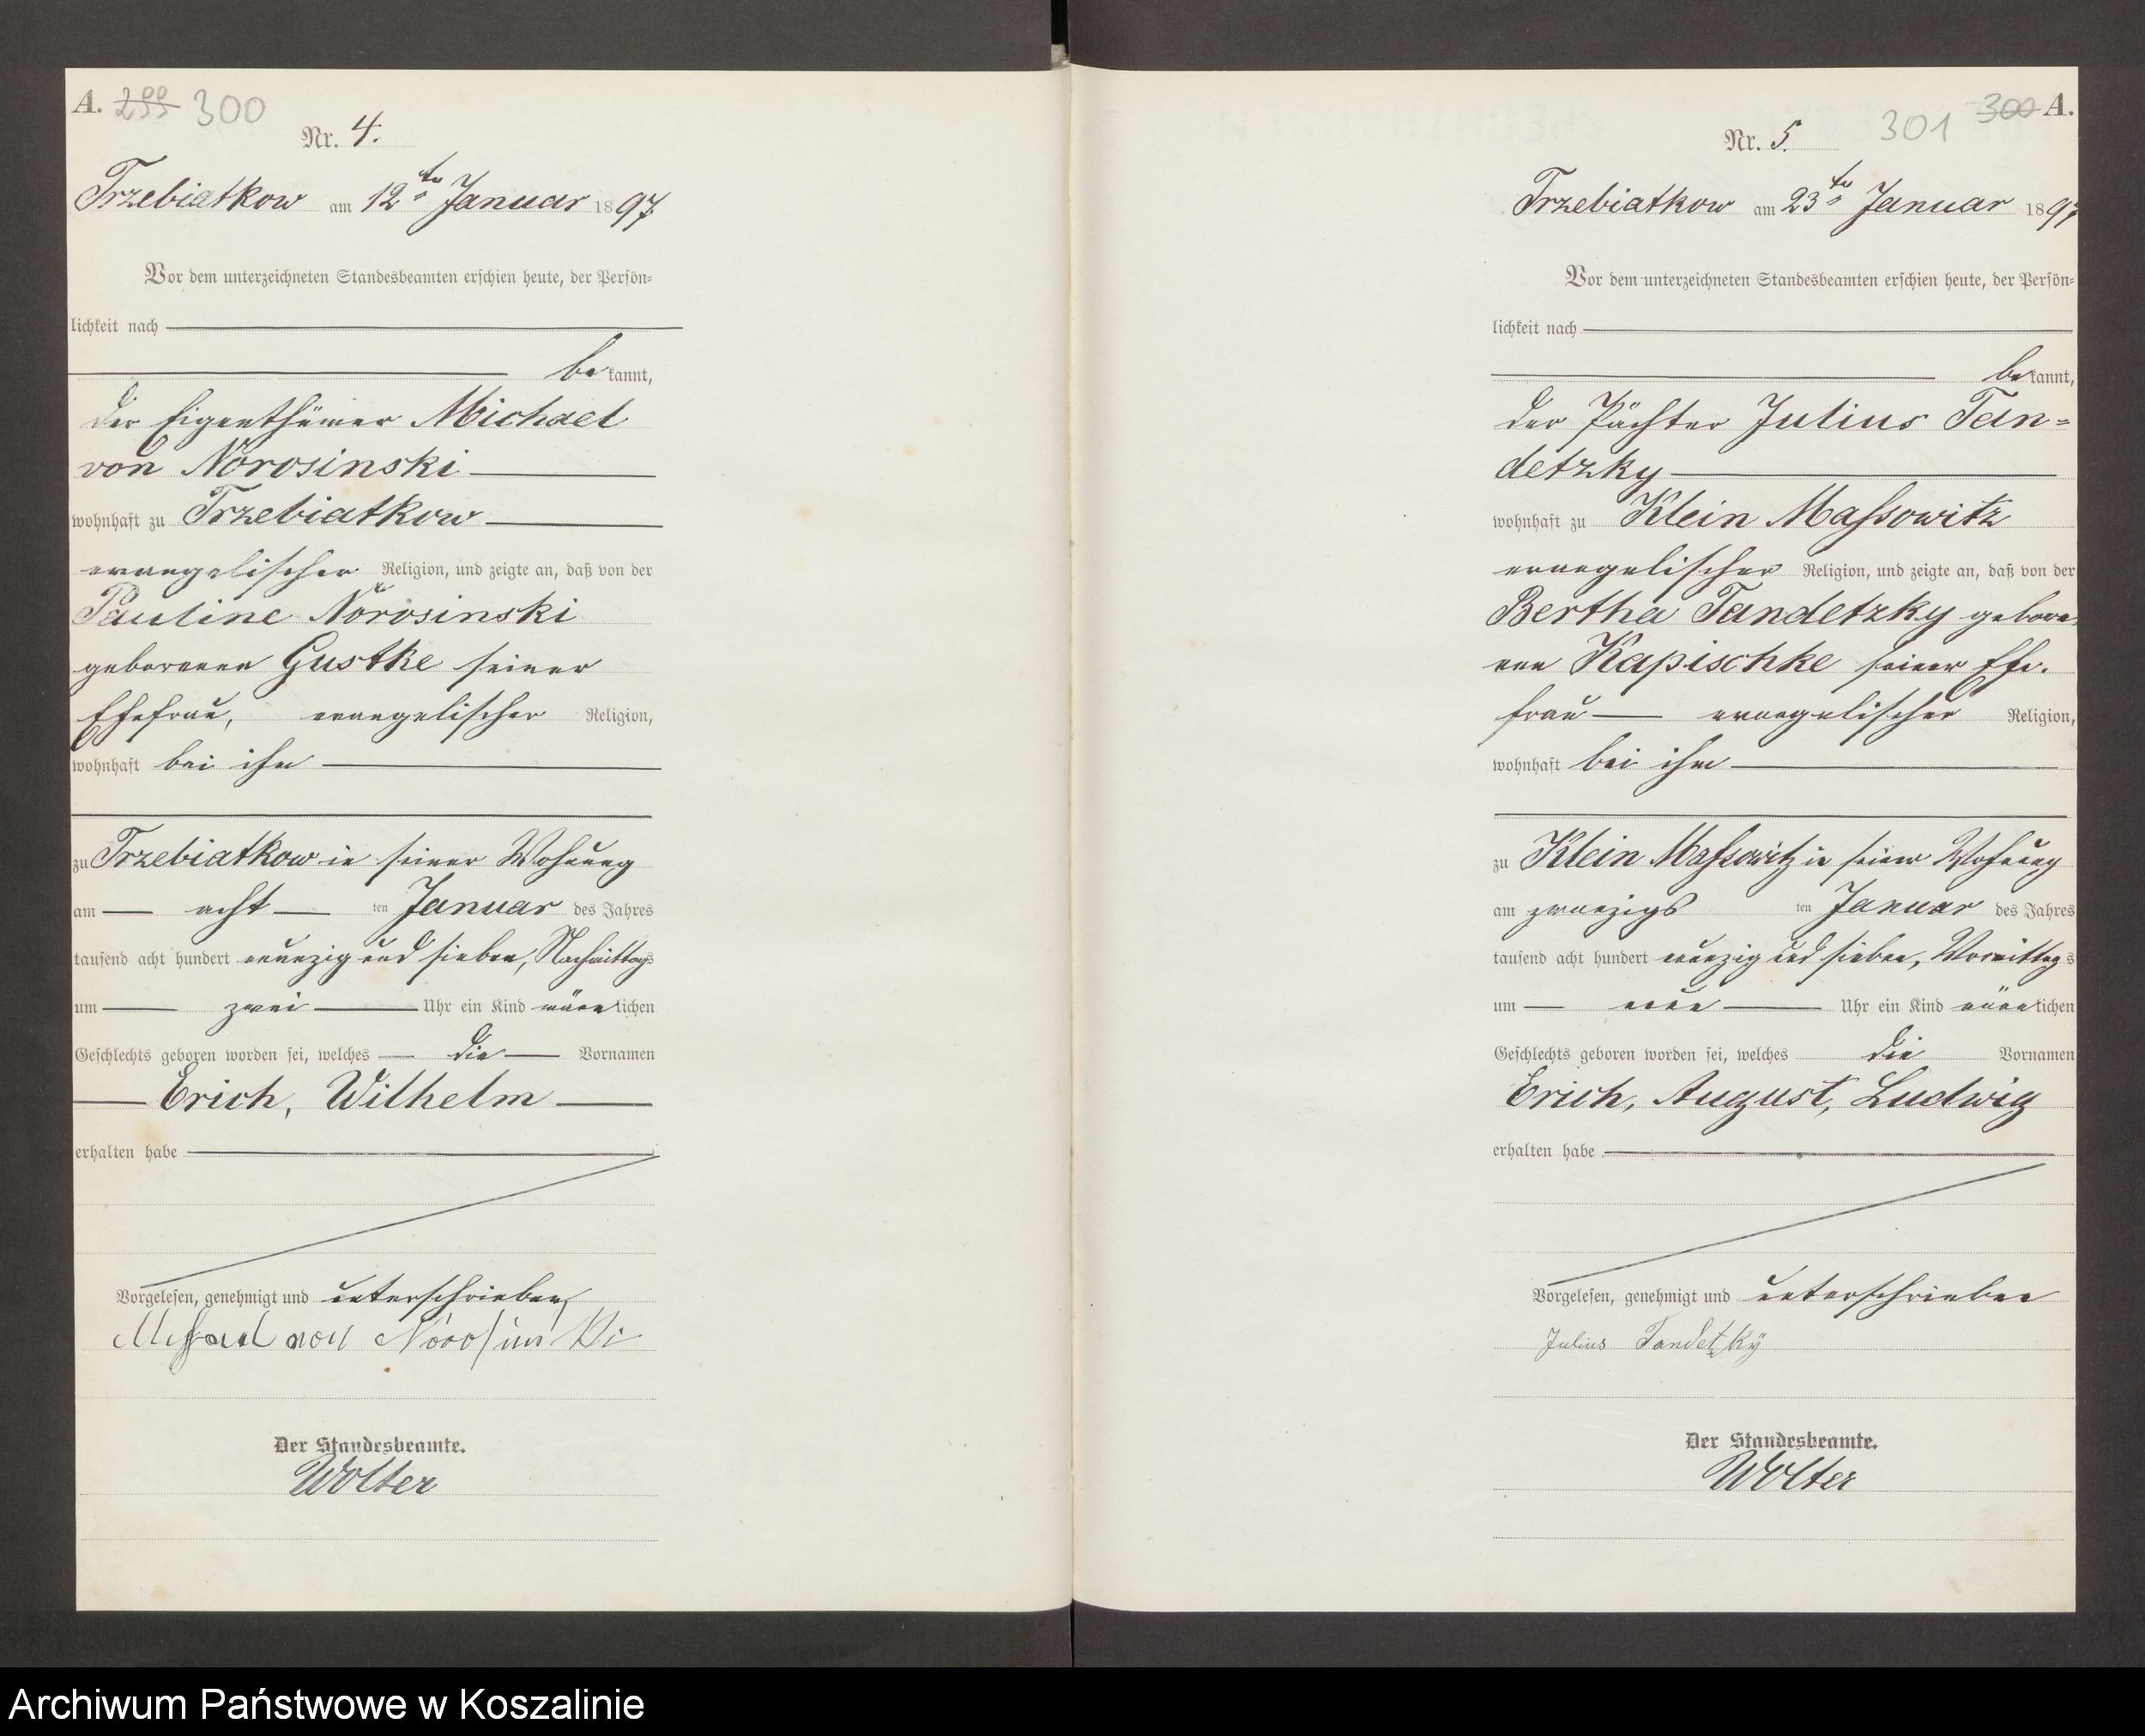 A. 299 300
Nr. 4.
Trzebiatkow am 12ten Januar 1897.
Vor dem unterzeichneten Standesbeamten erschien heute, der Persön-
lichkeit nach
be kannt,
der Eigenthümer Michael
von Nórosinski
wohnhaft zu Trzebiatkow
evangelischer Religion, und zeigte an, daß von der
Pauline Nórosinski
geborenen Gustke seiner
Ehefrau, evangelischer Religion,
wohnhaft bei ihm
zu Trzebiatkow in seiner Wohnung
am acht ten Januar des Jahres
tausend acht hundert neunzig und sieben, Nachmittags
um zwei Uhr ein Kind männlichen
Geschlechts geboren worden sei, welches die Vornamen
Erich, Wilhelm
erhalten habe
Vorgelesen, genehmigt und unterschrieben,
Michael von Nórosinski
Der Standesbeamte.
Wolter
301 300 A.
Nr. 5.
Trzebiatkow am 23ten Januar 1897
Vor dem unterzeichneten Standesbeamten erschien heute, der Persön-
lichkeit nach
be kannt,
der Pächter Julius Tan-
detzky
wohnhaft zu Klein Massowitz
evangelischer Religion, und zeigte an, daß von der
Bertha Tandetzky gebore-
nen Kapischke seiner Ehe-
frau evangelischer Religion,
wohnhaft bei ihm
zu Klein Massowitz in seiner Wohnung
am zwanzigs ten Januar des Jahres
tausend acht hundert neunzig und sieben, Vormittags
um neun Uhr ein Kind männlichen
Geschlechts geboren worden sei, welches die Vornamen
Erich, August, Ludwig
erhalten habe
Vorgelesen, genehmigt und unterschrieben
Julius Tandetzky
Der Standesbeamte.
Wolter
Archiwum Państwowe w Koszalinie